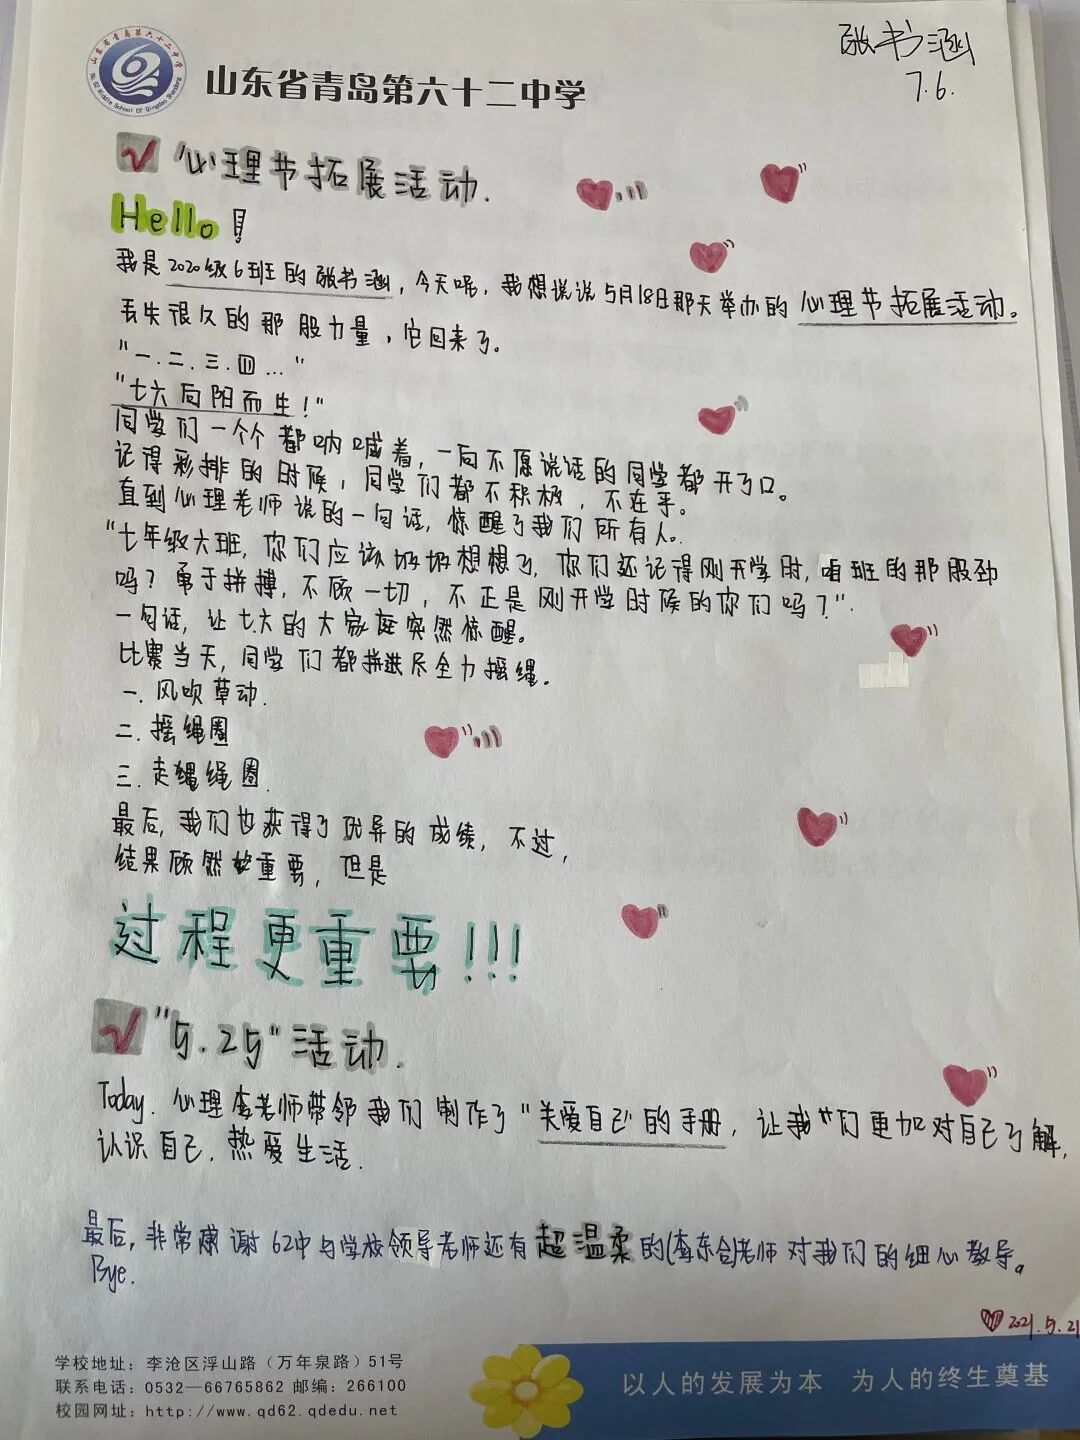 山东省青岛第六十二中学
书涵
7.6.
✓ 心理节拓展活动.
Hello!
我是2020级6班的 书涵，今天呢，我想说说5月18日那天举办的心理节拓展活动。
丢失很久的那股力量，它回来了。
"一.二.三.四..."
"七六向阳而生！"
同学们一个个都呐喊着，一向不愿说话的同学都开了口。
记得彩排的时候，同学们都不积极，不在乎。
直到心理老师说的一句话，惊醒了我们所有人。
"七年级六班，你们应该好好想想了，你们还记得刚开学时，咱班的那股劲
吗？勇于拼搏，不顾一切，不正是刚开学时候的你们吗？".
一句话，让七.六的大家庭突然惊醒。
比赛当天，同学们都拼进尽全力摇绳。
一.风吹草动.
二.摇绳圈
三.走绳绳圈.
最后，我们也获得了优异的成绩，不过，
结果顾然重要，但是
过程更重要!!!
✓ "5.25"活动.
Today.心理李老师带邻我们制作了"关爱自己"的手册，让我们更加对自己了解，
认识自己.热爱生活.
最后，非常感谢62中与学校领导老师还有超温柔的(李东合)老师对我们的细心教导。
Bye.
2021.5.21
学校地址：李沧区浮山路（万年泉路）51号
联系电话：0532—66765862 邮编：266100
校园网址：http://www.qd62.qdedu.net
以人的发展为本 为人的终生奠基